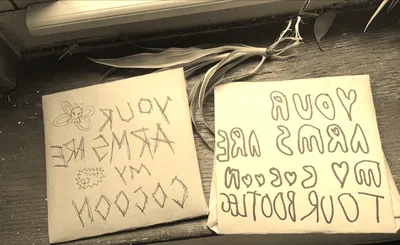 YOUR
ARMS ARE
MY
COCOON
YOUR
ARMS ARE
MY COCOON
TOUR BOOTLEG